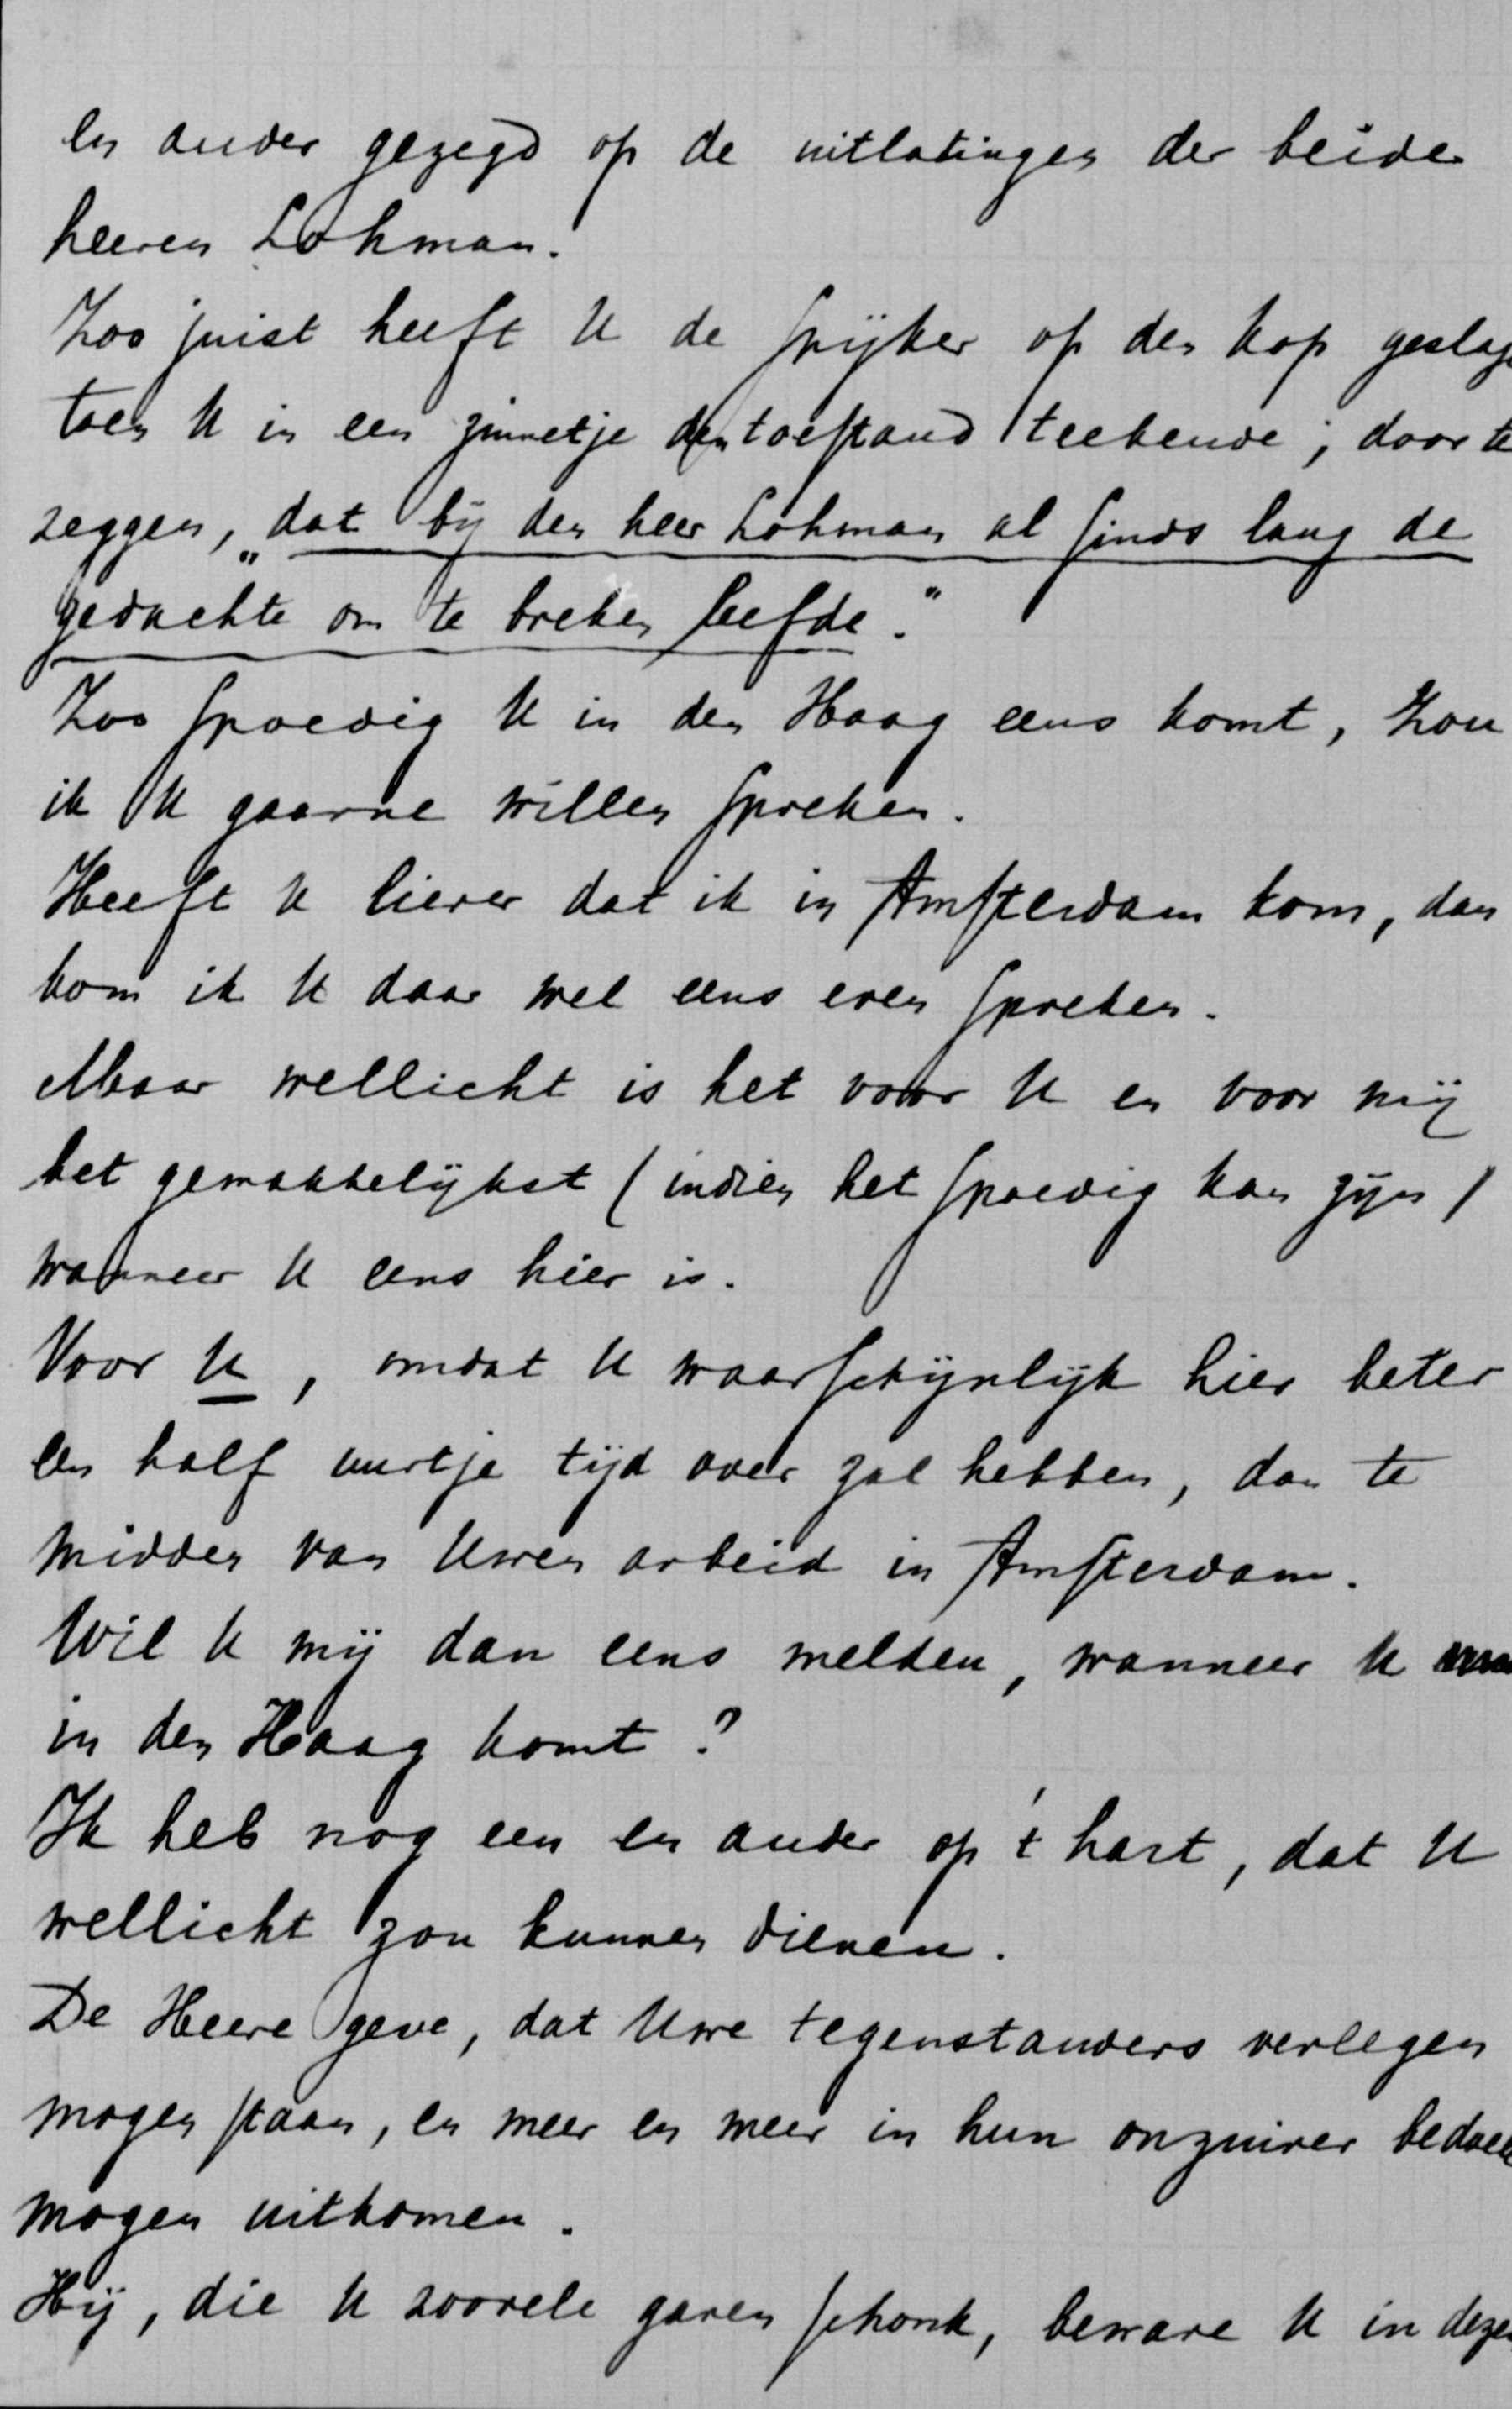 en ander gezegd op de uitlatingen der beide
heeren Lohman.
Zoo juist heeft U de spijker op den kop geslag
toen U in een zinnetje den toestand teekende, door te
zeggen, „dat bij den heer Lohman al sinds lang de
gedachte om te breken leefde."
Zoo spoedig U in den Haag eens komt, zou
ik U gaarne willen spreken.
Heeft U liever dat ik in Amsterdam kom, dan
kom ik U daar wel eens even spreken.
Maar wellicht is het voor U en voor mij
het gemakkelijkst (indien het spoedig kan zijn)
wanneer U eens hier is.
Voor U, omdat U waarschijnlijk hier beter
een half uurtje tijd over zal hebben, dan te
midden van Uwen arbeid in Amsterdam.
Wil U mij dan eens melden, wanneer U
in den Haag komt?
Ik heb nog een en ander op 't hart, dat U
wellicht zou kunnen dienen.
De Heere geve, dat Uwe tegenstanders verlegen
mogen staan, en meer en meer in hun onzuiver bedoel
mogen uitkomen.
Hij, die U zoovele gaven schonk, beware U in dezen